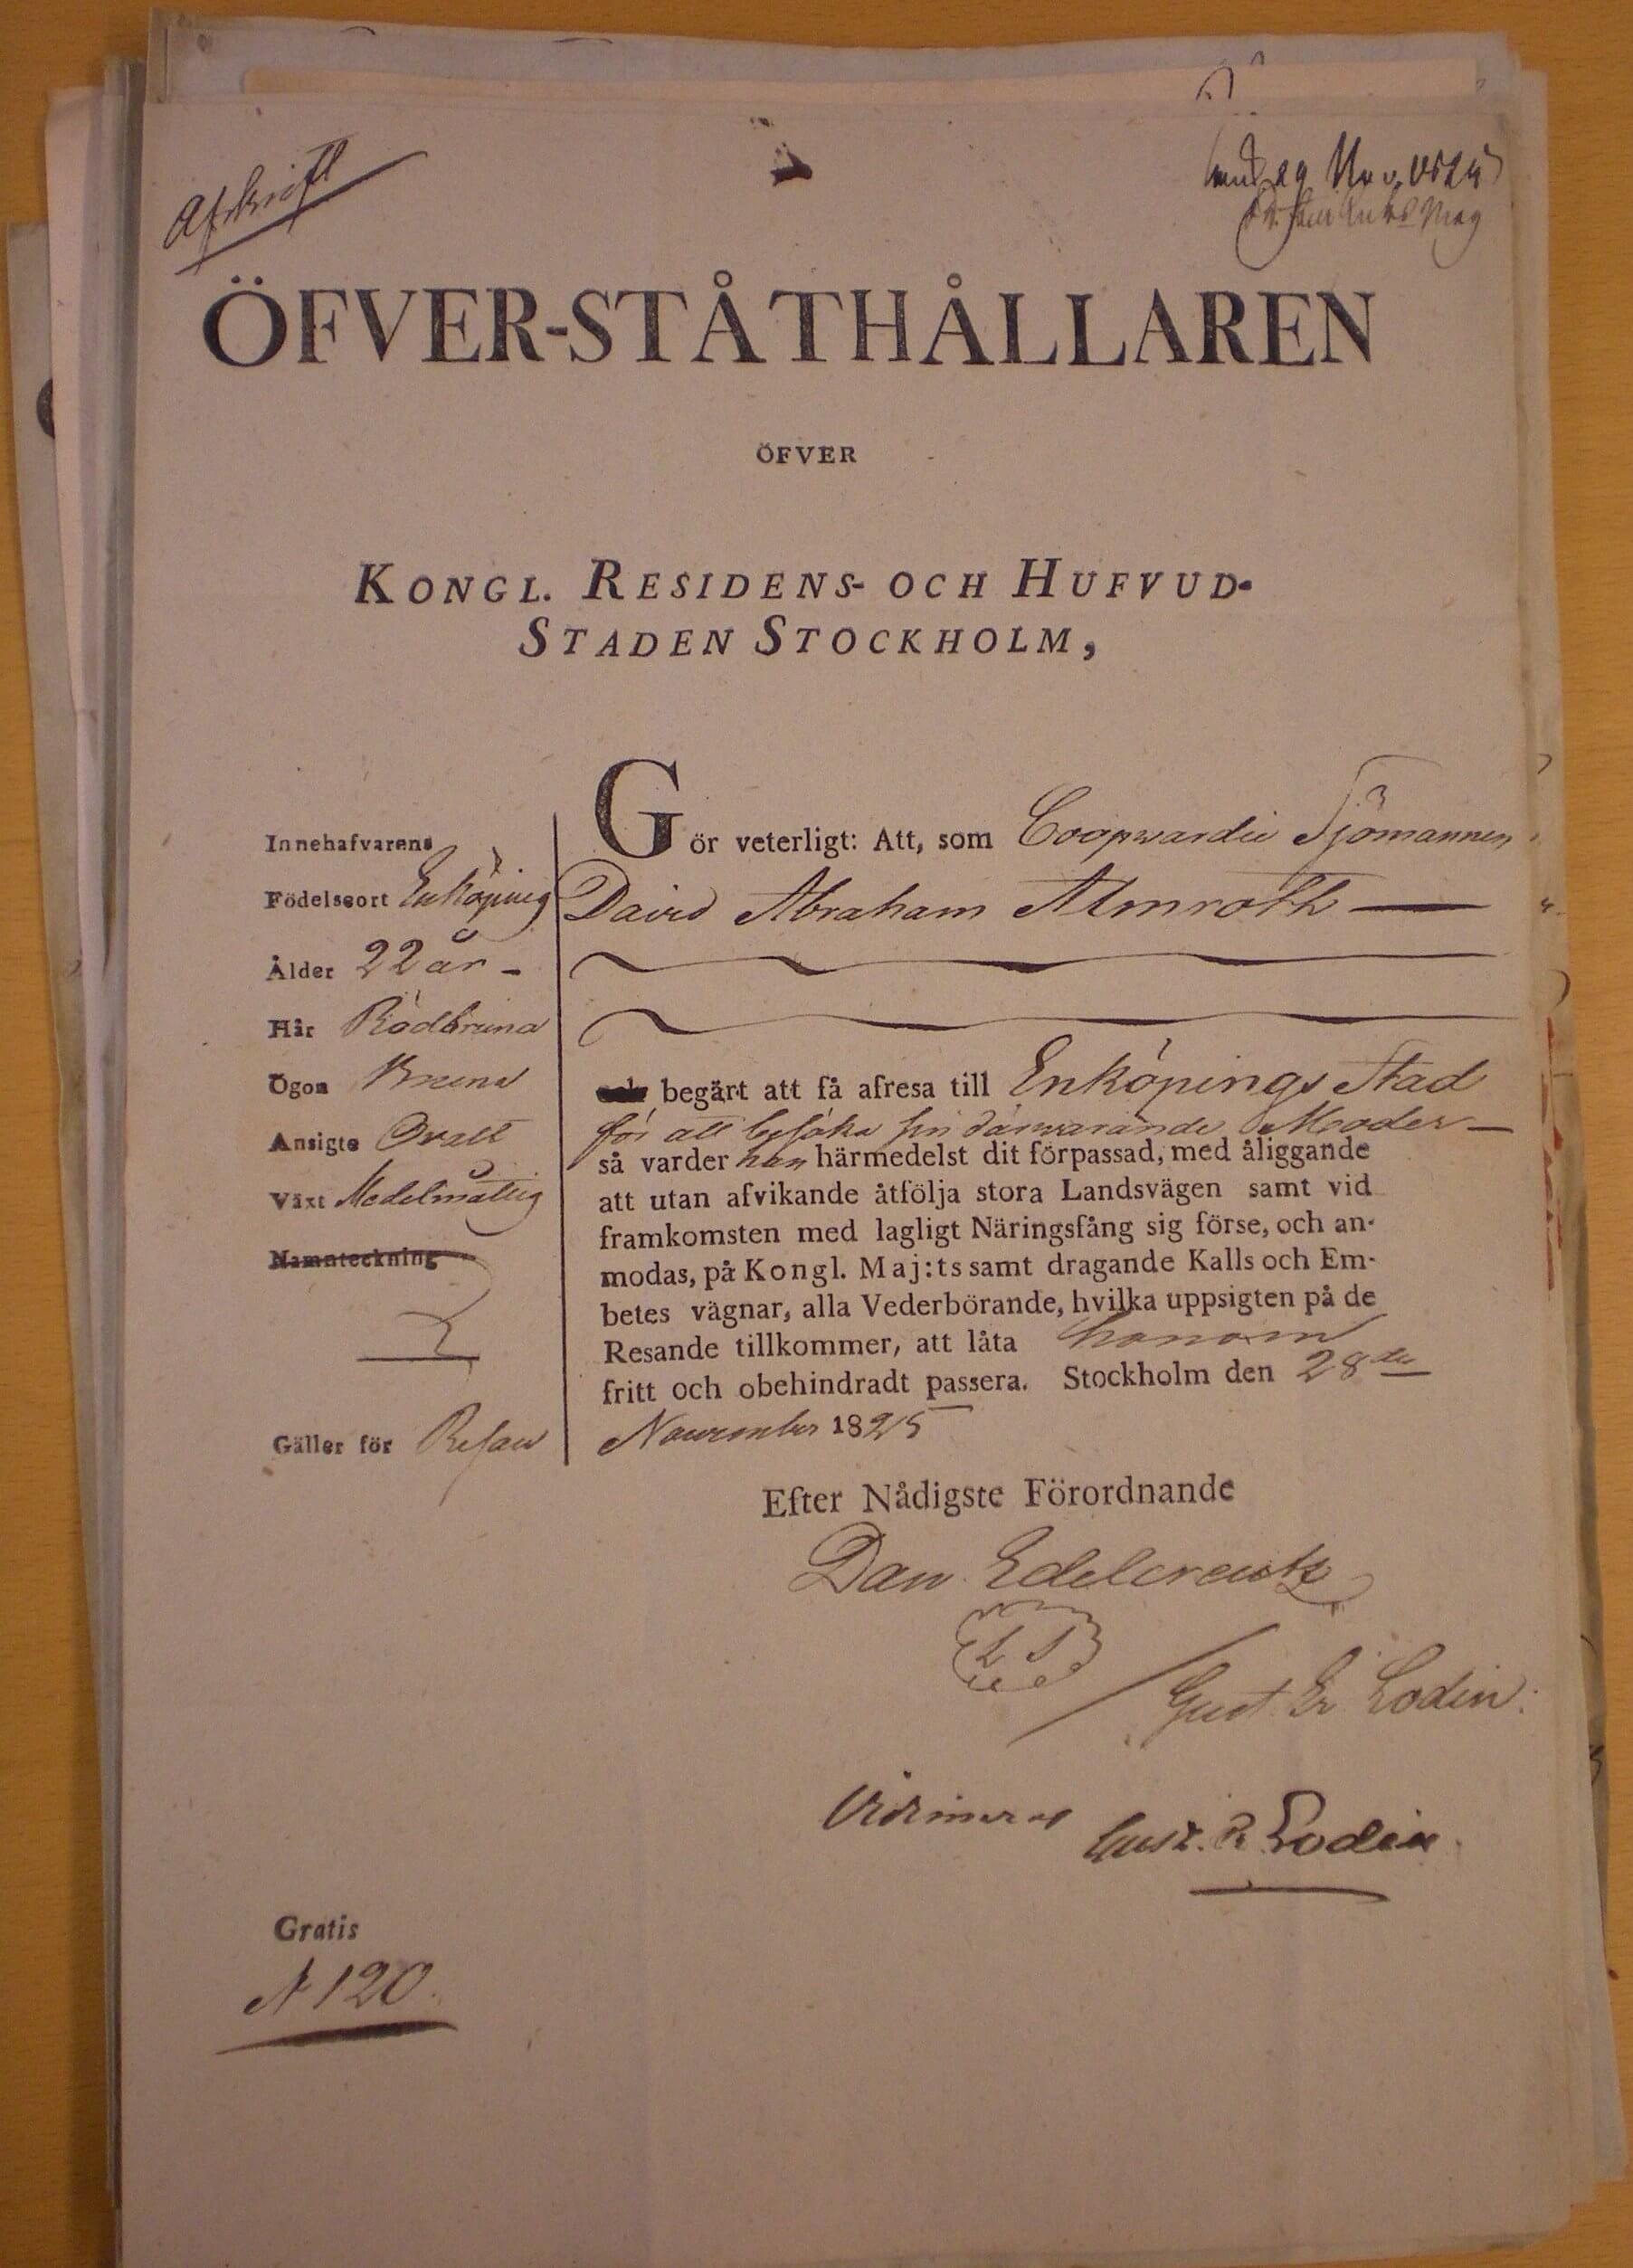 Afskrift
29 Nov. 1825
ÖFVER-STÅTHÅLLAREN
ÖFVER
KONGL. RESIDENS- OCH HUFVUD-
STADEN STOCKHOLM,
Innehafvarens
Födelseort Enköping
Ålder 22 år -
Hår Rödbruna
Ögon Bruna
Ansigte Ovalt
Växt Medelmåttig
Namnteckning
Gäller för Resan
Gör veterligt: Att, som Coopvardie Sjömannen
David Abraham Almroth —
och begärt att få afresa till Enköpings Stad
för att besöka sin därvarande Moder —
så varder han härmedelst dit förpassad, med åliggande
att utan afvikande åtfölja stora Landsvägen samt vid
framkomsten med lagligt Näringsfång sig förse, och an-
modas, på Kongl. Maj:ts samt dragande Kalls och Em-
betes vägnar, alla Vederbörande, hvilka uppsigten på de
Resande tillkommer, att låta honom
fritt och obehindradt passera. Stockholm den 28de
November 1825
Efter Nådigste Förordnande
Dan. Edelcreutz
L S
Gust. Er. Lodin.
Vidimeras Gust. E. Lodin.
Gratis
N 120.